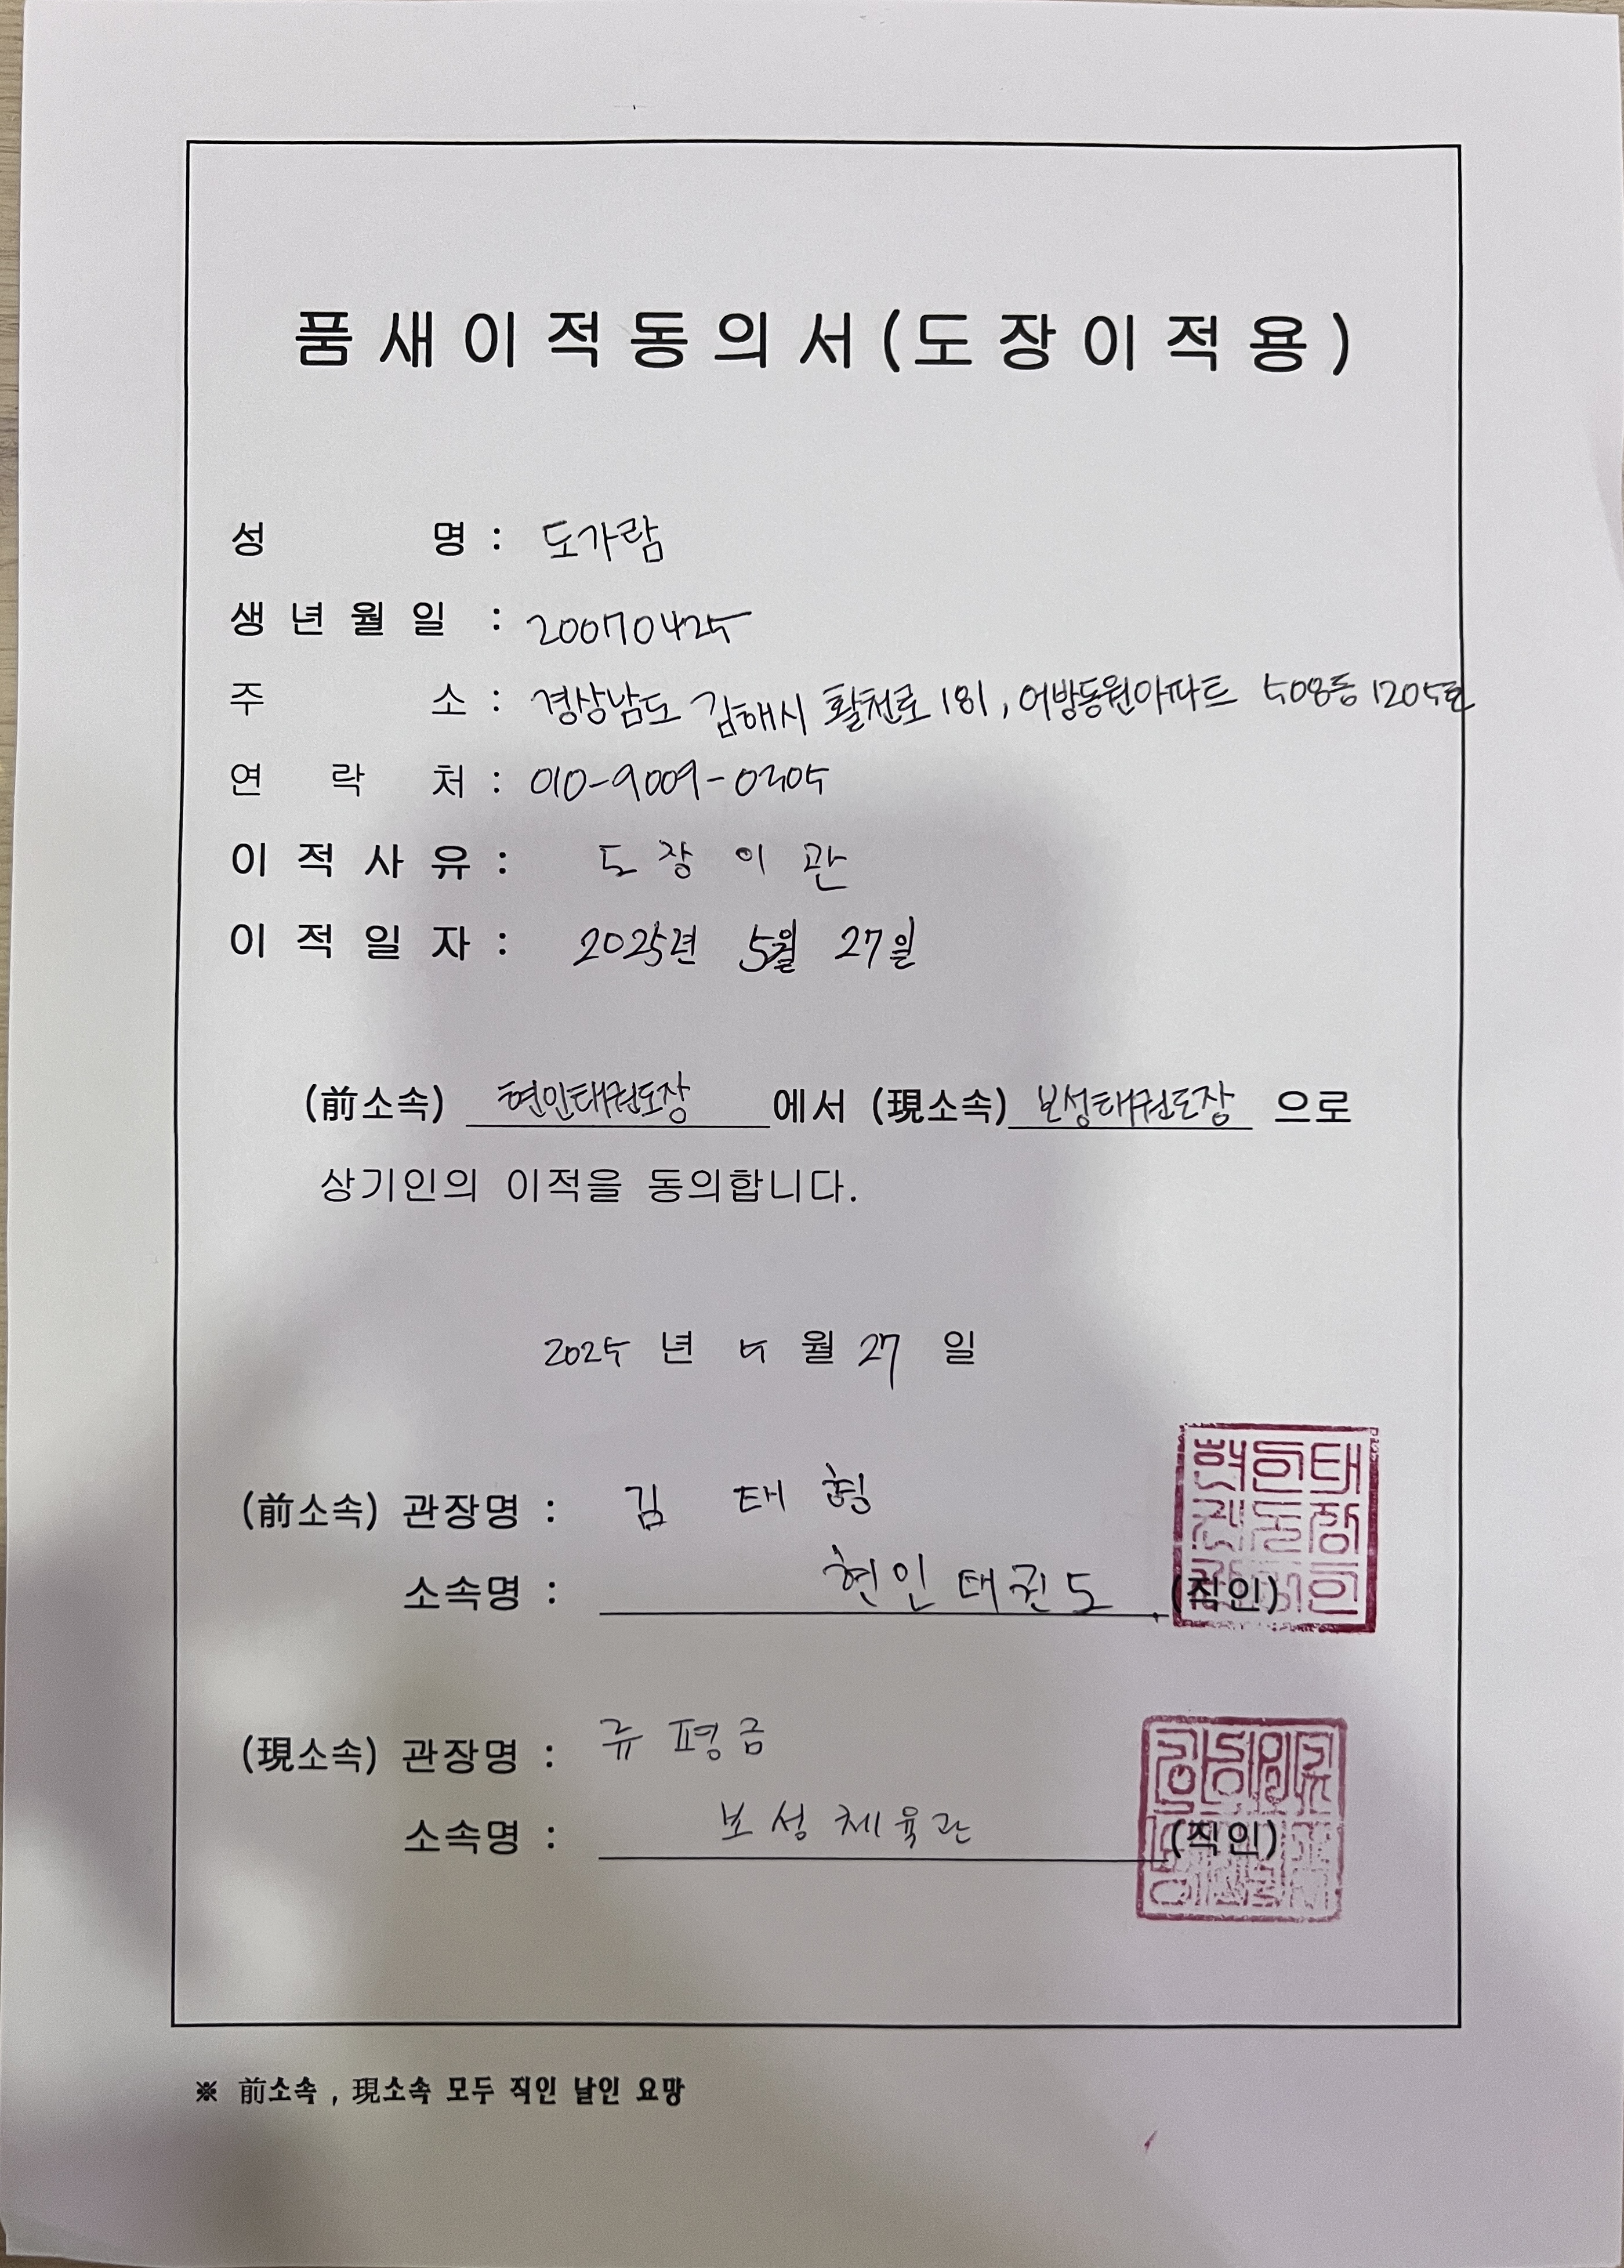 품새이적동의서(도장이적용)
성 명 : 도가람
생년월일 : 20070425
주 소 : 경상남도 김해시 활천로 181, 어방동원아파트 508동 1205호
연 락 처 : 010-9009-0305
이적사유 : 도장이관
이적일자 : 2025년 5월 27일
(前소속) 현인태권도장 에서 (現소속) 보성태권도장 으로
상기인의 이적을 동의합니다.
2025 년 5 월 27 일
(前소속) 관장명 : 김태형
소속명 : 현인태권도 (직인)
(現소속) 관장명 : 류평금
소속명 : 보성체육관 (직인)
※ 前소속 , 現소속 모두 직인 날인 요망